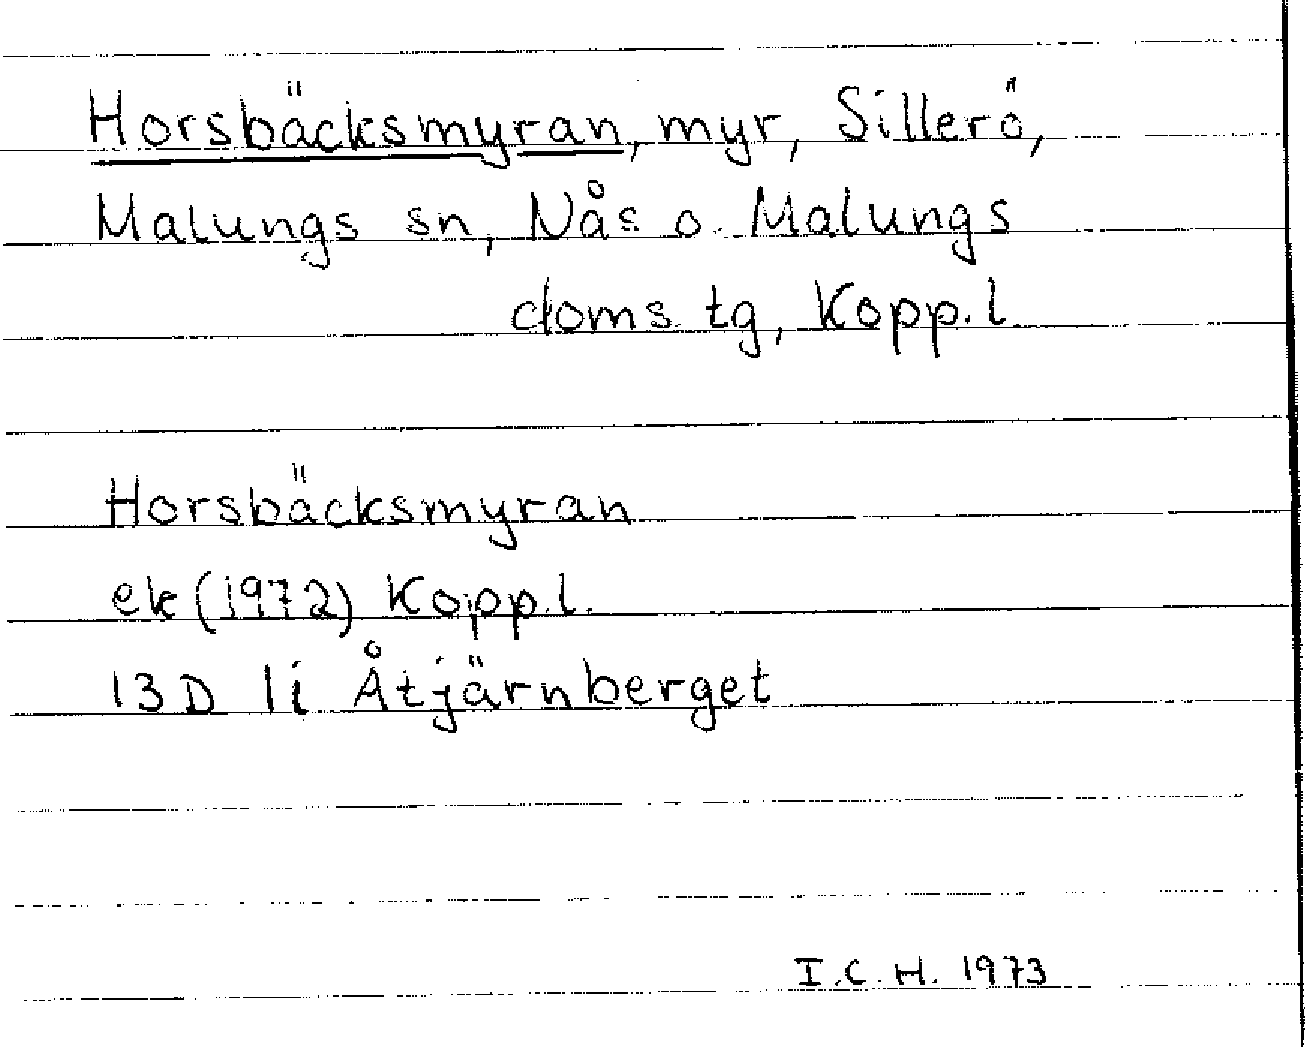 Horsbäcksmyran, myr, Sillerö,
Malungs sn, Nås o. Malungs
doms tg, Kopp. l
Horsbäcksmyran
ek (1972) Kopp. l.
13 D 1i Åtjärnberget
I. C. H. 1973